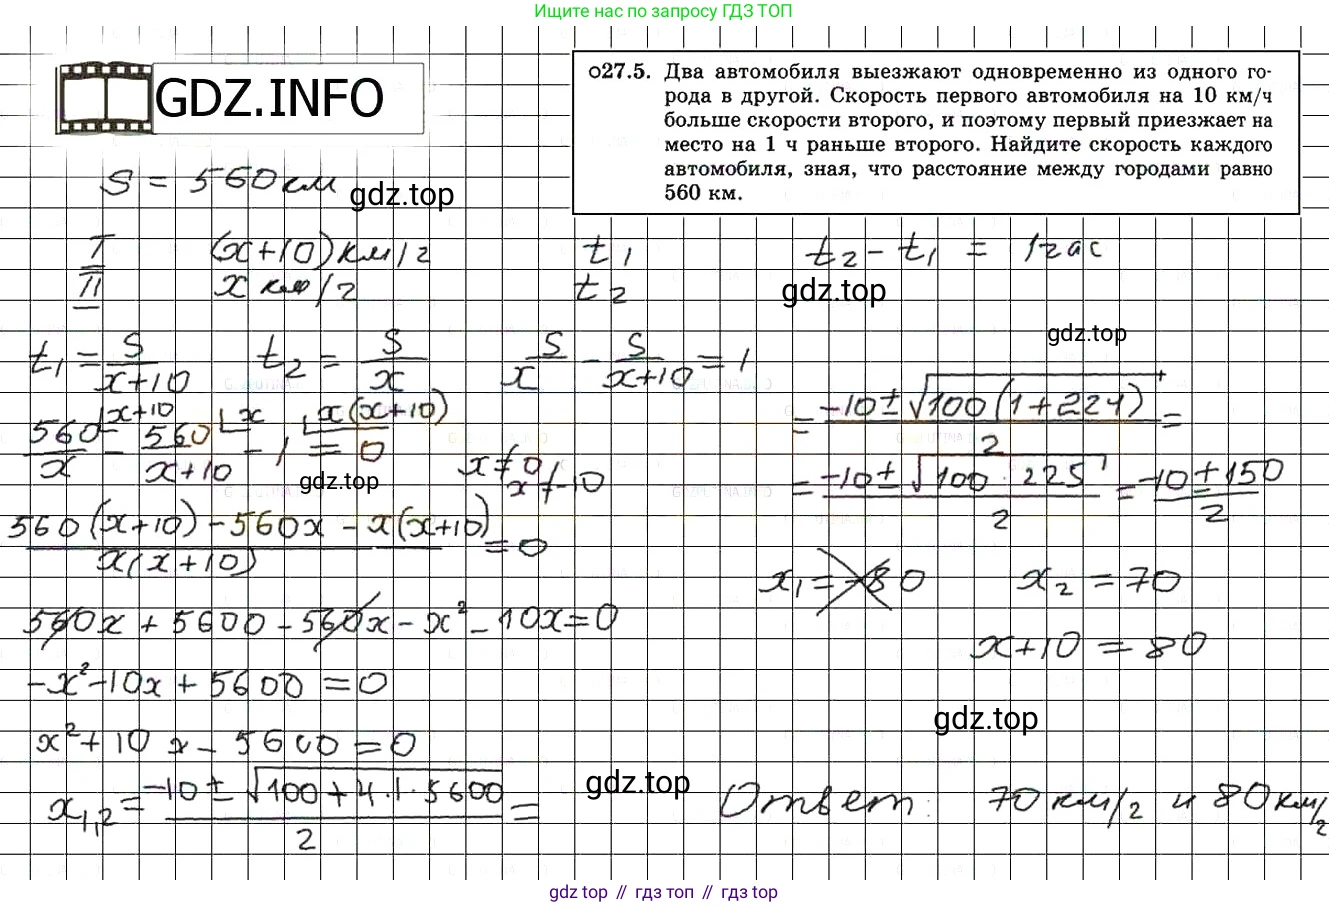 Ищите нас по запросу ГДЗ ТОП
GDZ.INFO
○27.5. Два автомобиля выезжают одновременно из одного го-
рода в другой. Скорость первого автомобиля на 10 км/ч
больше скорости второго, и поэтому первый приезжает на
место на 1 ч раньше второго. Найдите скорость каждого
автомобиля, зная, что расстояние между городами равно
560 км.
S = 560 км
gdz.top
I (x+10) км/ч t₁ t₂ - t₁ = 1 час
II x км/ч t₂
gdz.top
gdz.top
t₁ = S/(x+10) t₂ = S/x S/x - S/(x+10) = 1
560/x |x+10 - 560/(x+10) |x - 1 |x(x+10) = 0
x ≠ 0
x ≠ -10
gdz.top
(560(x+10) - 560x - x(x+10))/(x(x+10)) = 0
560x + 5600 - 560x - x² - 10x = 0
-x² - 10x + 5600 = 0
x² + 10x - 5600 = 0
x₁,₂ = (-10 ± √(100 + 4·1·5600))/2 =
= (-10 ± √(100(1+224)))/2 =
= (-10 ± √(100·225))/2 = (-10 ± 150)/2
x₁ = -80 x₂ = 70
x+10 = 80
gdz.top
gdz.top
Ответ: 70 км/ч и 80 км/ч
gdz top // гдз топ // гдз top